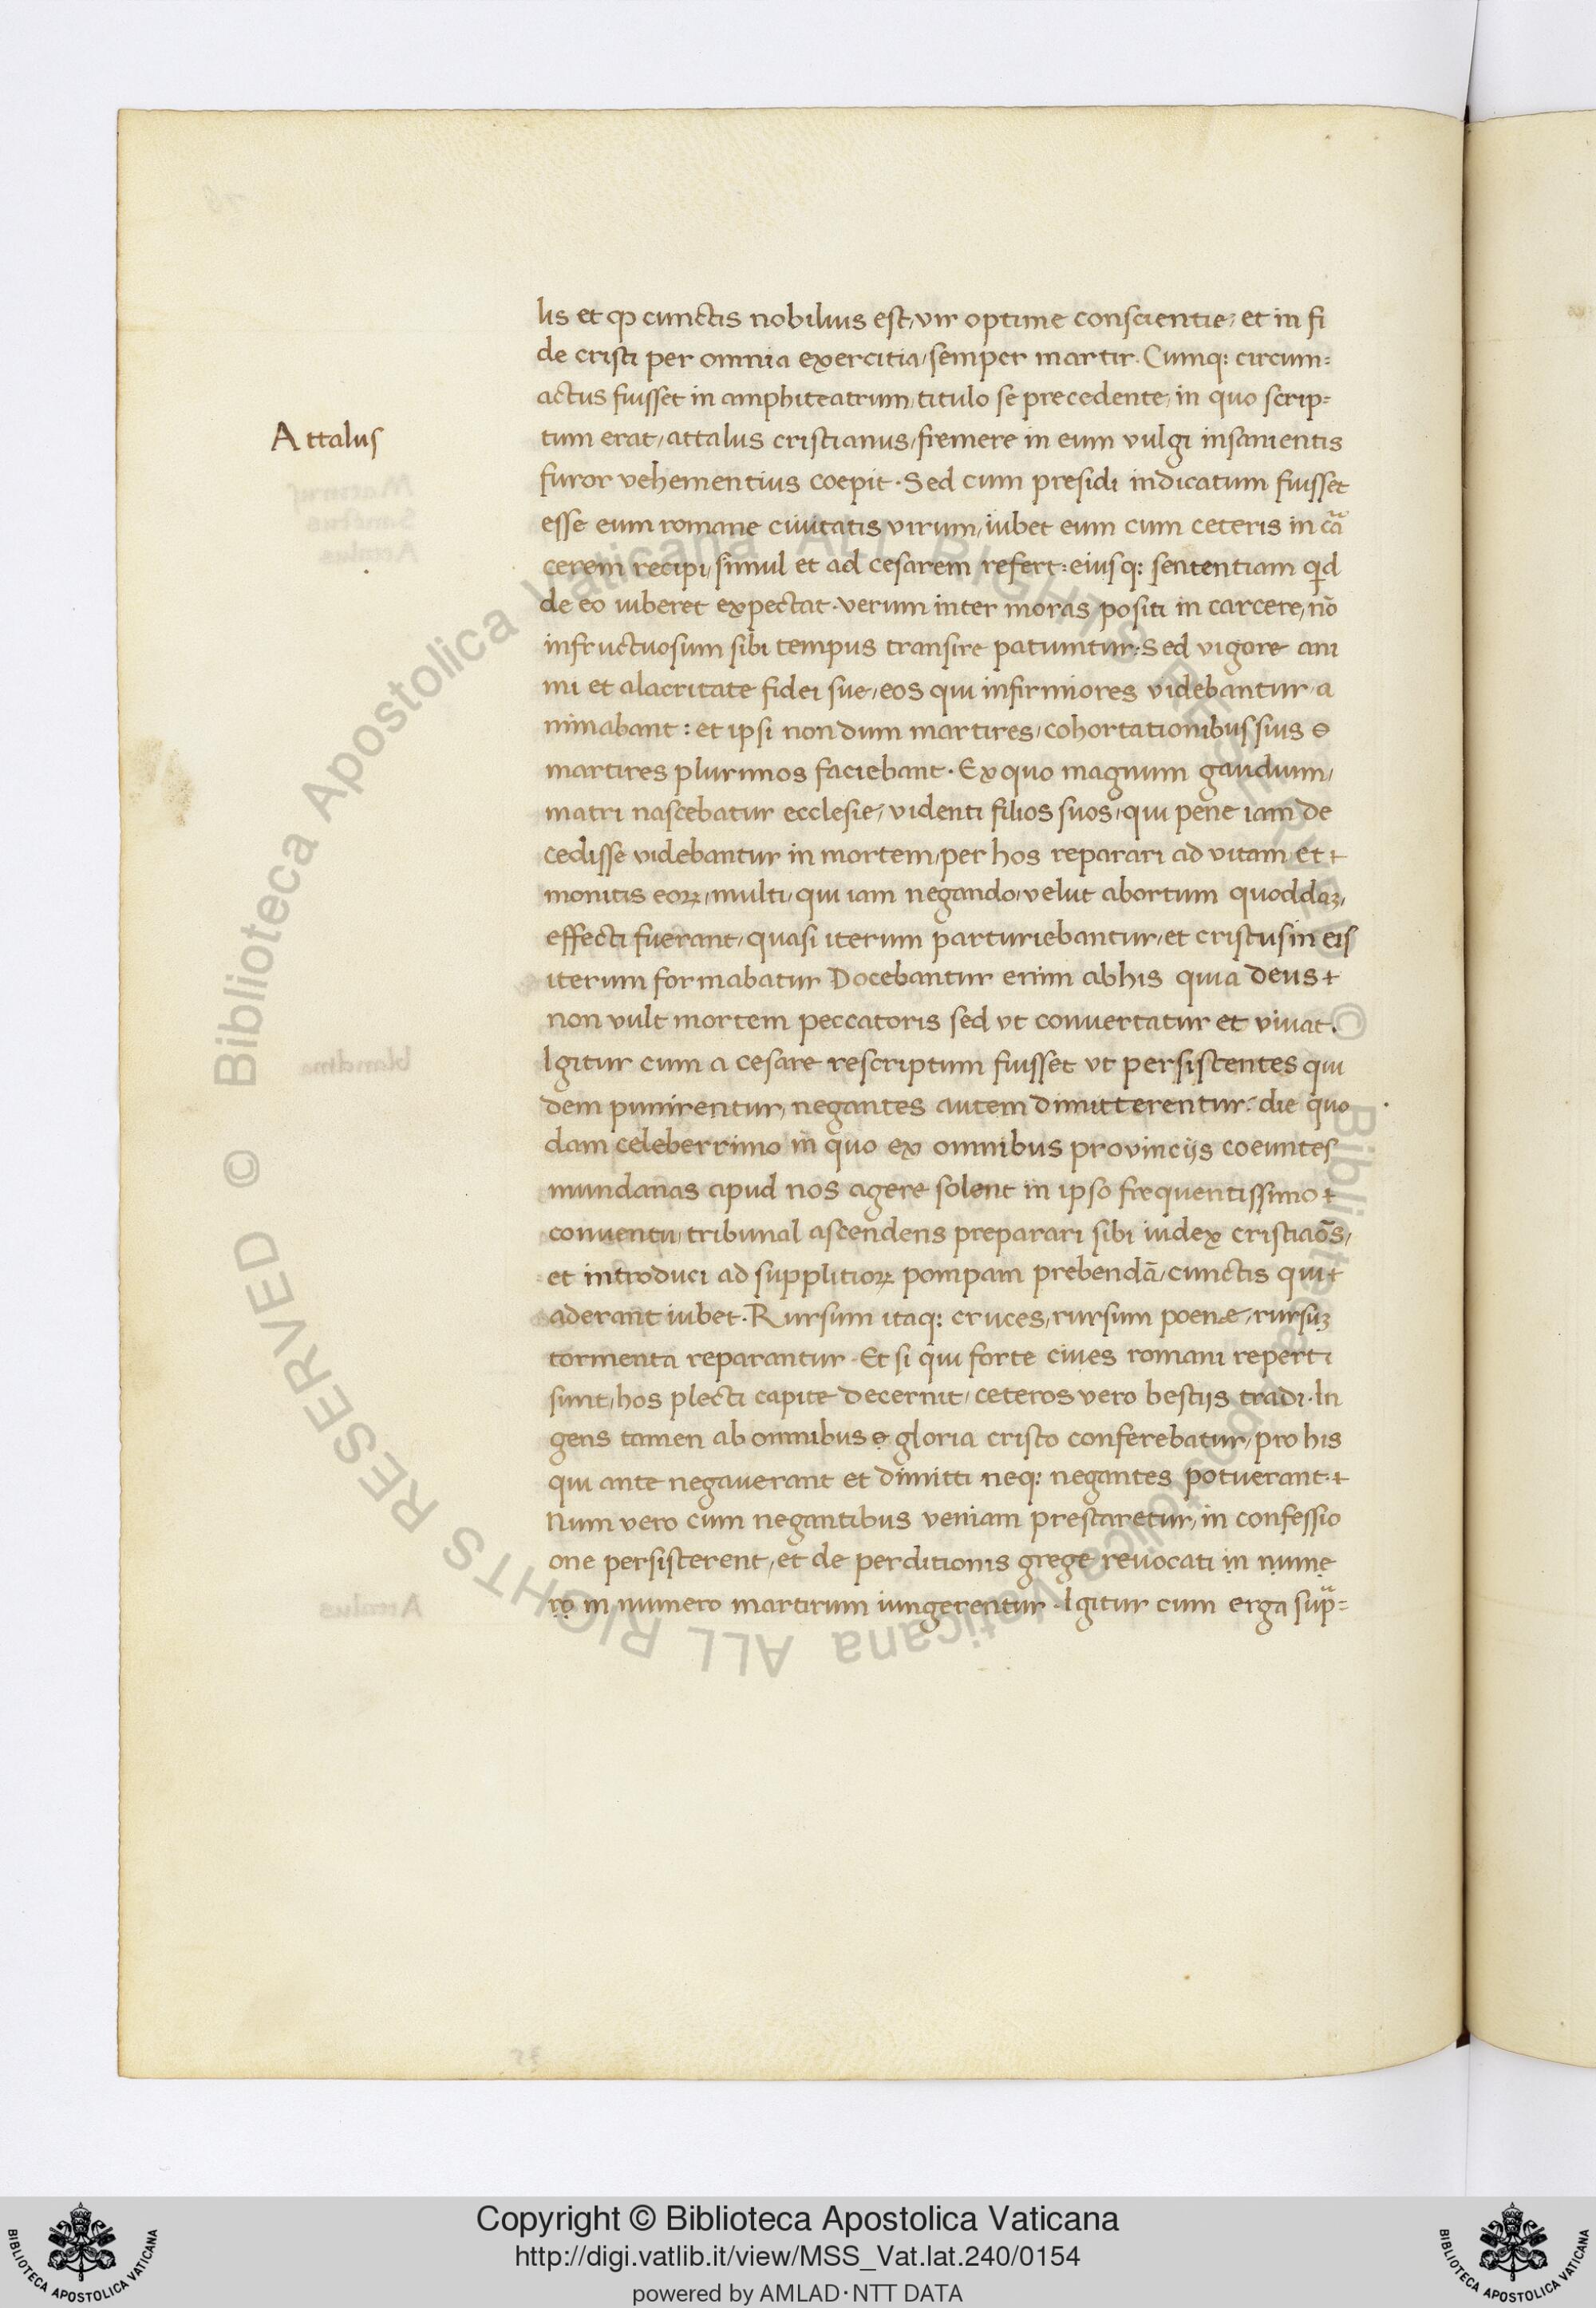 lis et ꝙ cunctis nobilius est, vir optime conscientie, et in fi
de cristi per omnia exercitia, semper martir. Cumq; circum=
actus fuisset in amphiteatrum, titulo se precedente, in quo scrip=
Attalus
tum erat, attalus cristianus, fremere in eum vulgi insanientis
furor vehementius coepit. Sed cum presidi indicatum fuisset
esse eum romane ciuitatis virum, iubet eum cum ceteris in cã
cerem recipi, simul et ad cesarem refert: eiusq; sententiam qid
de eo iuberet expectat. verum inter moras positi in carcere, nõ
infructuosum sibi tempus transire patiuntur: Sed vigore ani
mi et alacritate fidei sue, eos qui infirmiores videbantur, a
nimabant: et ipsi nondum martires, cohortationibus suis
martires plurimos faciebant. Ex quo magnum gaudium,
matri nascebatur ecclesie, videnti filios suos, qui pene iam de
cedisse videbantur in mortem, per hos reparari ad vitam, et
monitis eoꝝ, multi, qui iam negando, velut abortum quoddaꝫ,
effecti fuerant, quasi iterum parturiebantur, et cristus in eis
iterum formabatur Docebantur enim ab his quia deus
non vult mortem peccatoris sed vt conuertatur et viuat.
Igitur cum a cesare rescriptum fuisset vt persistentes qui
dem punirentur, negantes autem dimitterentur: die quo
dam celeberrimo in quo ex omnibus provincijs coeuntes
mundanas apud nos agere solent in ipso frequentissimo
conuentu, tribunal ascendens preparari sibi iudex cristiaõs,
et introduci ad supplitioꝝ pompam prebendã, cunctis qui
aderant iubet. Rursum itaq; cruces, rursum poene, rursuꝫ
tormenta reparantur. Et si qui forte ciues romani reperti
sunt, hos plecti capite decernit, ceteros vero bestijs tradi. In
gens tamen ab omnibus e gloria cristo conferebatur, pro his
qui ante negauerant et dimitti neq; negantes potuerant.
Num vero cum negantibus veniam prestaretur, in confessio
one persisterent, et de perditionis grege reuocati in nume
ro in numero martirum iungerentur. Igitur cum erga sup=
Copyright © Biblioteca Apostolica Vaticana
http://digi.vatlib.it/view/MSS_Vat.lat.240/0154
powered by AMLAD·NTT DATA
BIBLIOTECA APOSTOLICA VATICANA
BIBLIOTECA APOSTOLICA VATICANA
© Biblioteca Apostolica Vaticana ALL RIGHTS RESERVED
© Biblioteca Apostolica Vaticana ALL RIGHTS RESERVED